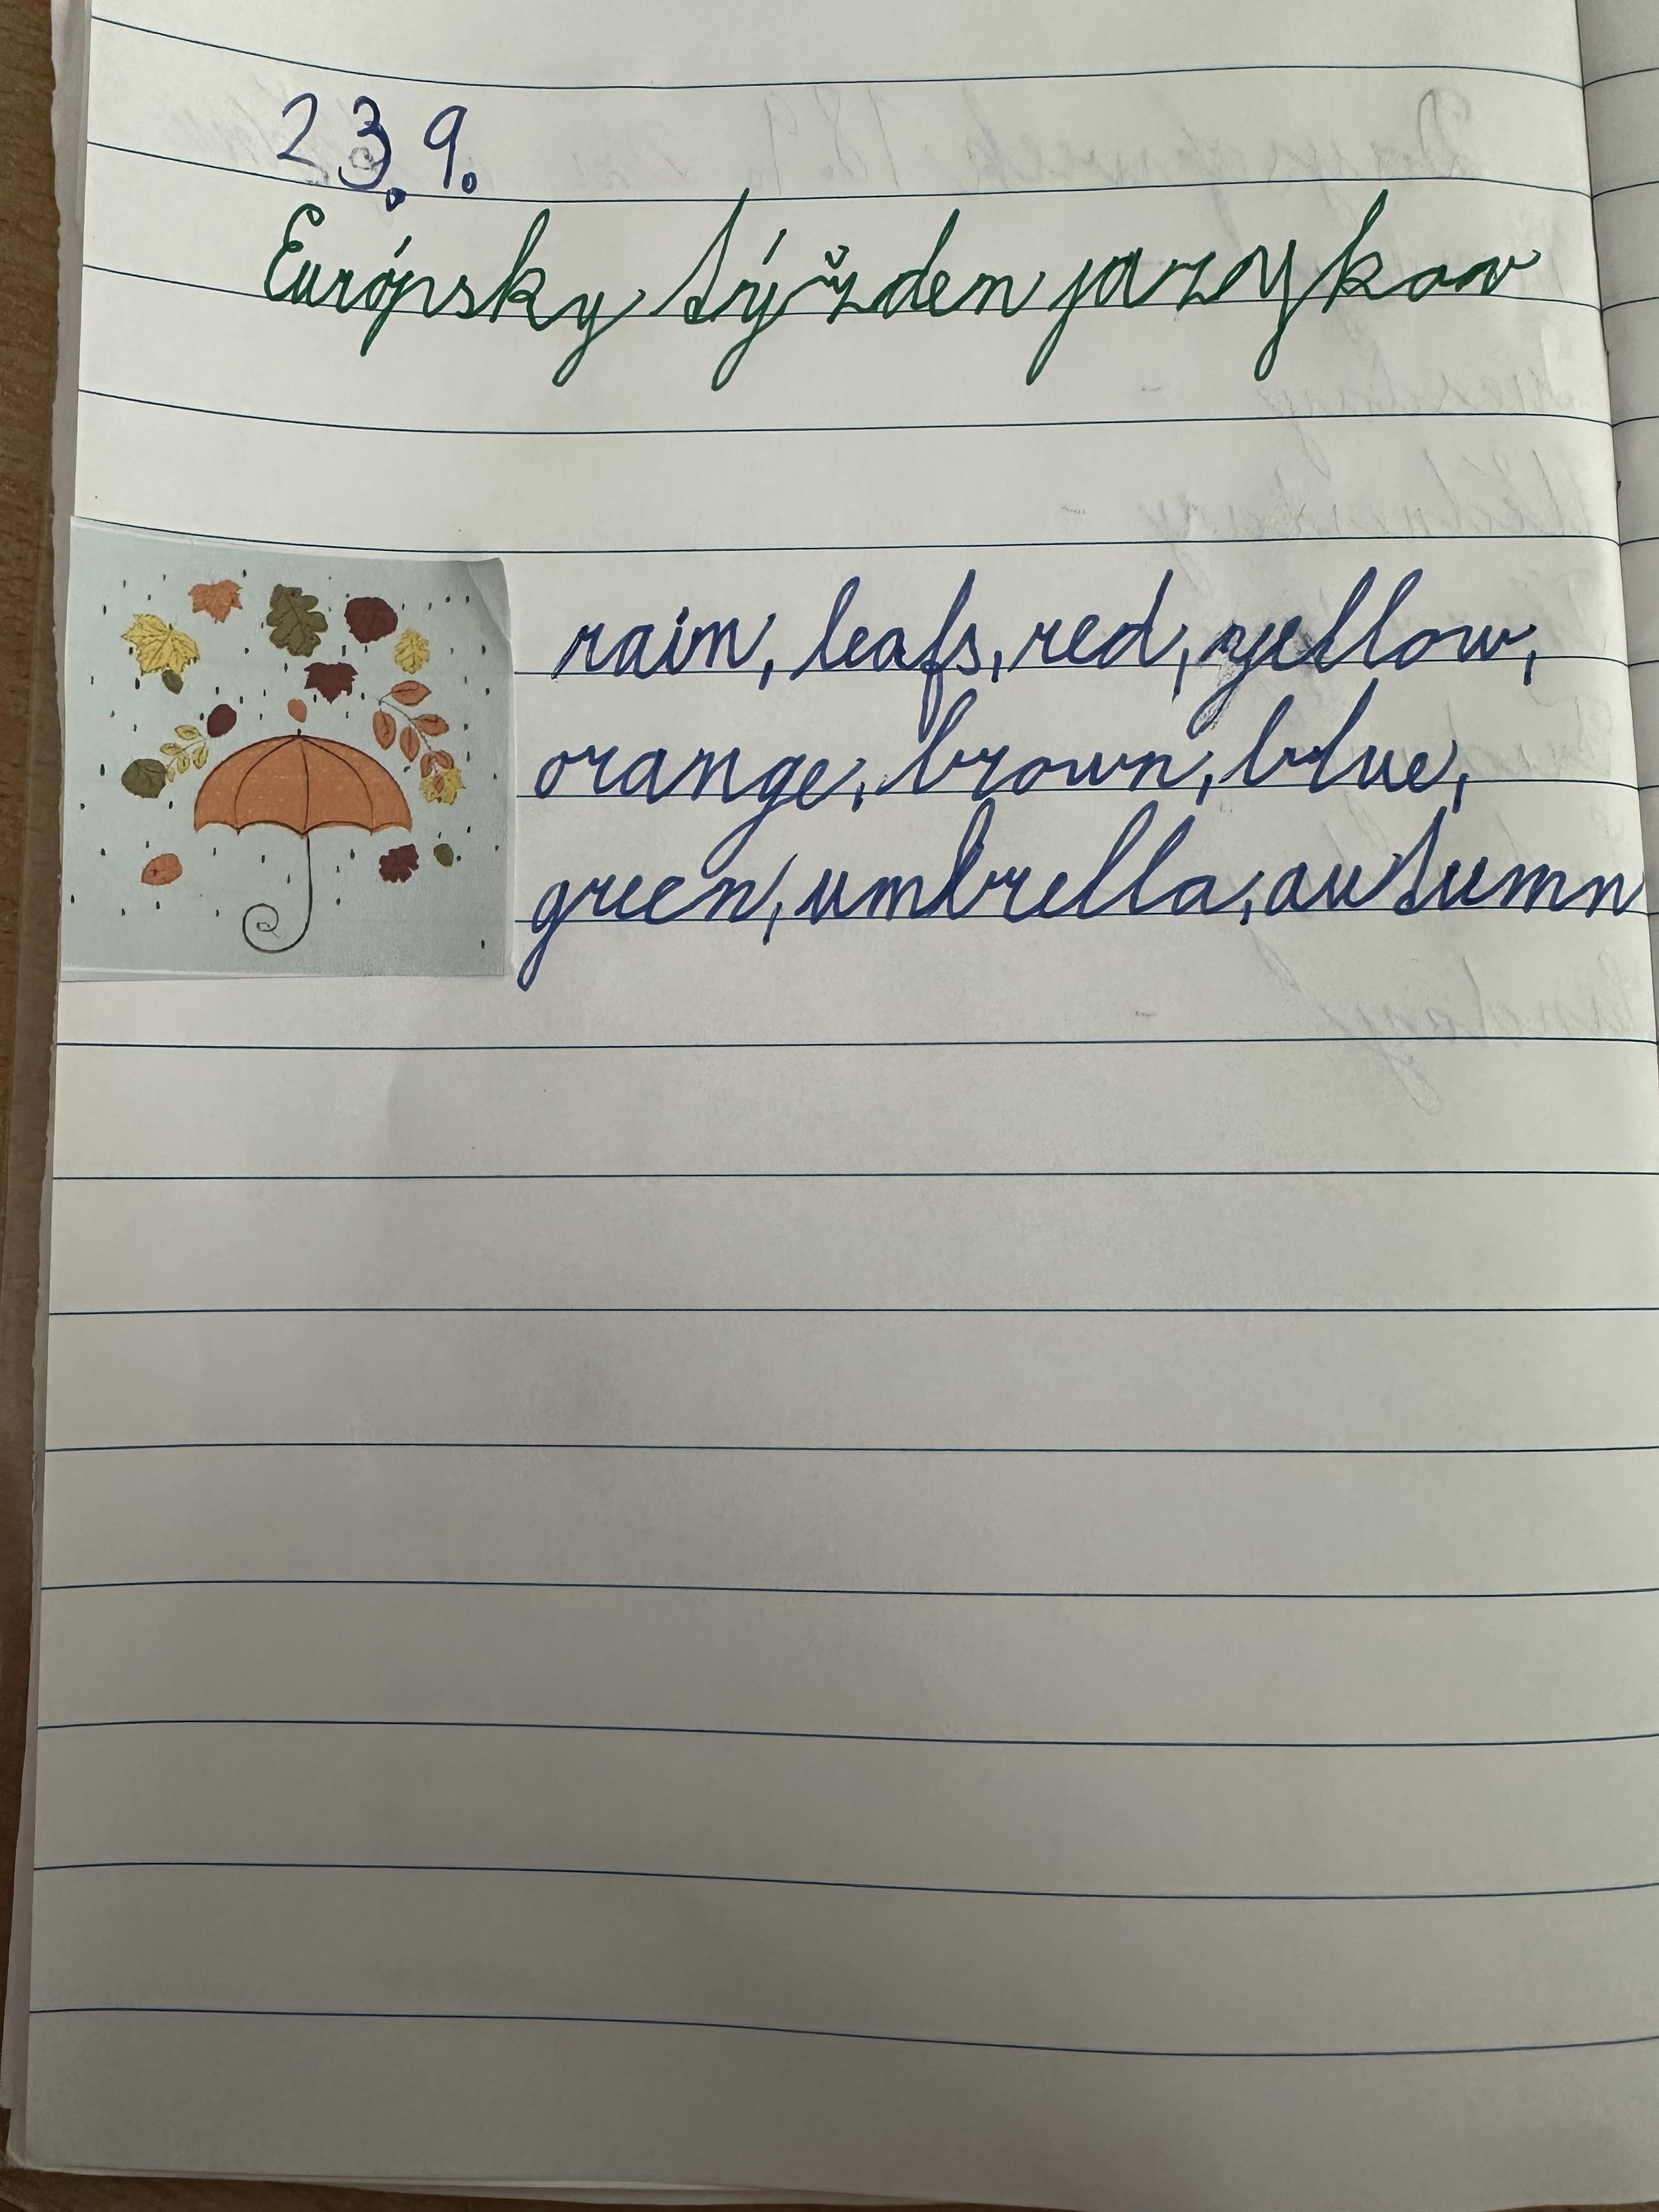 23.9.
Európsky týžden jazykov
rain, leafs, red, yellow,
orange, brown, blue,
green, umbrella, autumn